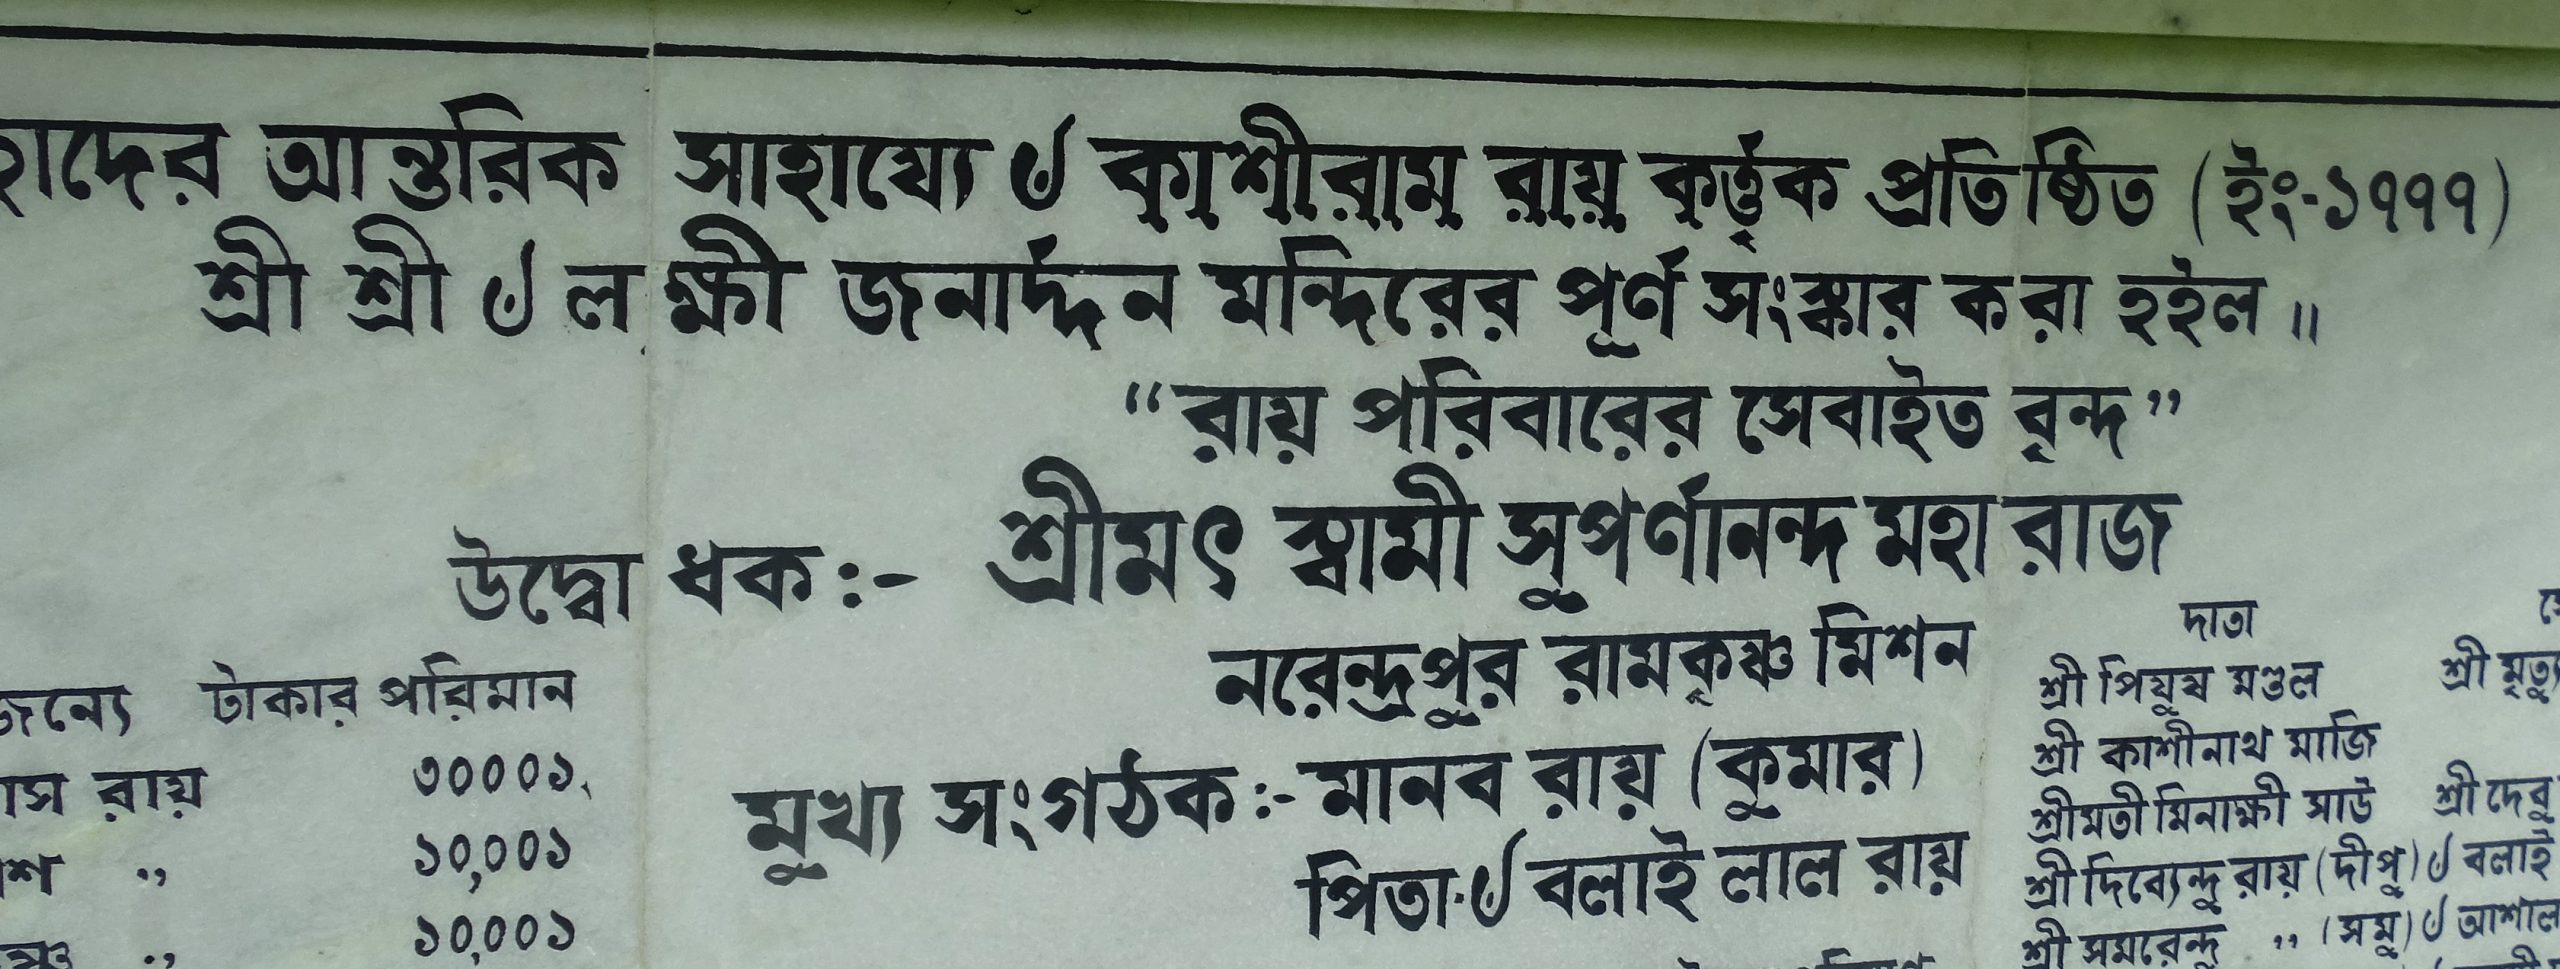 আন্তরিক সাহায্যে ৺ কাশীরাম রায় কর্ত্তৃক প্রতিষ্ঠিত (ইং-১৭৭৭)
শ্রী শ্রী ৺ লক্ষ্মী জনার্দ্দন মন্দিরের পূর্ণ সংস্কার করা হইল ॥
“রায় পরিবারের সেবাইত বৃন্দ”
উদ্বোধক :- শ্রীমৎ স্বামী সুপর্ণানন্দ মহারাজ
নরেন্দ্রপুর রামকৃষ্ণ মিশন
মুখ্য সংগঠক :- মানব রায় (কুমার)
পিতা-৺ বলাই লাল রায়
টাকার পরিমান
রায় ৩০০০১
„ ১০,০০১
„ ১০,০০১
দাতা
শ্রী পিযুষ মণ্ডল শ্রী
শ্রী কাশীনাথ মাজি
শ্রীমতী মিনাক্ষী সাউ শ্রী
শ্রী দিব্যেন্দু রায় (দীপু) ৺ বলাই
শ্রী সমরেন্দু „ (সমু) ৺